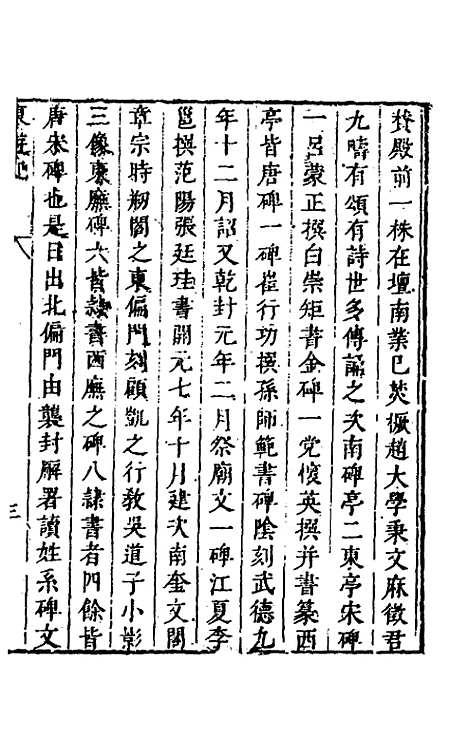 賛殿前一株在壇南業已焚橛趙大學秉文麻徵君
九疇有頌有詩世多傳誦之次南碑亭二東亭宋碑
一呂蒙正撰白崇矩書金碑一党懷英撰并書篆西
亭皆唐碑一碑崔行功撰孫師範書碑陰刻武德九
年十二月詔又乾封元年二月祭廟文一碑江夏李
邕撰范陽張廷珪書開元七年十月建次南奎文閣
章宗時剏閣之東偏門刻顧凱之行教吳道子小影
三像東廡碑六皆隷書西廡之碑八隷書者四餘皆
唐宋碑也是日出北偏門由襲封廨署讀姓系碑文
東遊記
三